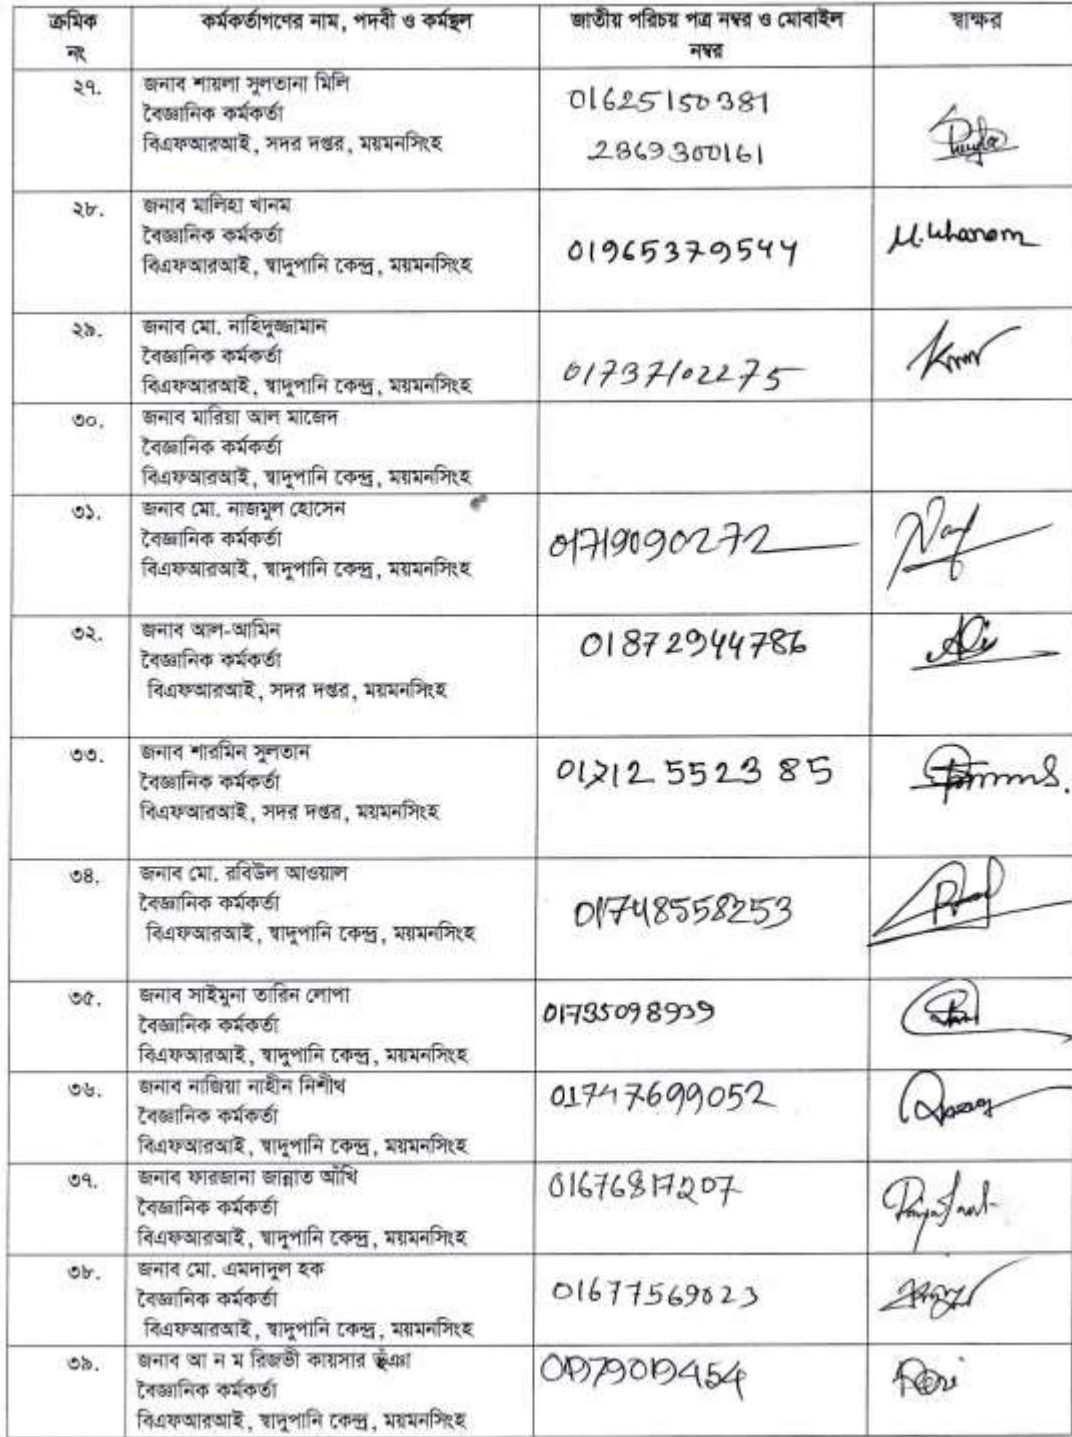 ক্রমিক নং কর্মকর্তাগণের নাম, পদবী ও কর্মস্থল জাতীয় পরিচয় পত্র নম্বর ও মোবাইল নম্বর স্বাক্ষর
২৭. জনাব শায়লা সুলতানা মিলি
বৈজ্ঞানিক কর্মকর্তা
বিএফআরআই, সদর দপ্তর, ময়মনসিংহ
01625150381
2869300161
২৮. জনাব মালিহা খানম
বৈজ্ঞানিক কর্মকর্তা
বিএফআরআই, স্বাদুপানি কেন্দ্র, ময়মনসিংহ
01965379544
M.Khanom
২৯. জনাব মো. নাহিদুজ্জামান
বৈজ্ঞানিক কর্মকর্তা
বিএফআরআই, স্বাদুপানি কেন্দ্র, ময়মনসিংহ
01737102275
৩০. জনাব মারিয়া আল মাজেদ
বৈজ্ঞানিক কর্মকর্তা
বিএফআরআই, স্বাদুপানি কেন্দ্র, ময়মনসিংহ
৩১. জনাব মো. নাজমুল হোসেন
বৈজ্ঞানিক কর্মকর্তা
বিএফআরআই, স্বাদুপানি কেন্দ্র, ময়মনসিংহ
01719090272
৩২. জনাব আল-আমিন
বৈজ্ঞানিক কর্মকর্তা
বিএফআরআই, সদর দপ্তর, ময়মনসিংহ
01872944786
৩৩. জনাব শারমিন সুলতান
বৈজ্ঞানিক কর্মকর্তা
বিএফআরআই, সদর দপ্তর, ময়মনসিংহ
01712552385
৩৪. জনাব মো. রবিউল আওয়াল
বৈজ্ঞানিক কর্মকর্তা
বিএফআরআই, স্বাদুপানি কেন্দ্র, ময়মনসিংহ
01748558253
৩৫. জনাব সাইমুনা তারিন লোপা
বৈজ্ঞানিক কর্মকর্তা
বিএফআরআই, স্বাদুপানি কেন্দ্র, ময়মনসিংহ
01735098939
৩৬. জনাব নাজিয়া নাহীন নিশীথ
বৈজ্ঞানিক কর্মকর্তা
বিএফআরআই, স্বাদুপানি কেন্দ্র, ময়মনসিংহ
01747699052
৩৭. জনাব ফারজানা জান্নাত আঁখি
বৈজ্ঞানিক কর্মকর্তা
বিএফআরআই, স্বাদুপানি কেন্দ্র, ময়মনসিংহ
01676817207
৩৮. জনাব মো. এমদাদুল হক
বৈজ্ঞানিক কর্মকর্তা
বিএফআরআই, স্বাদুপানি কেন্দ্র, ময়মনসিংহ
01677569023
৩৯. জনাব আ ন ম রিজভী কায়সার ভূঁঞা
বৈজ্ঞানিক কর্মকর্তা
বিএফআরআই, স্বাদুপানি কেন্দ্র, ময়মনসিংহ